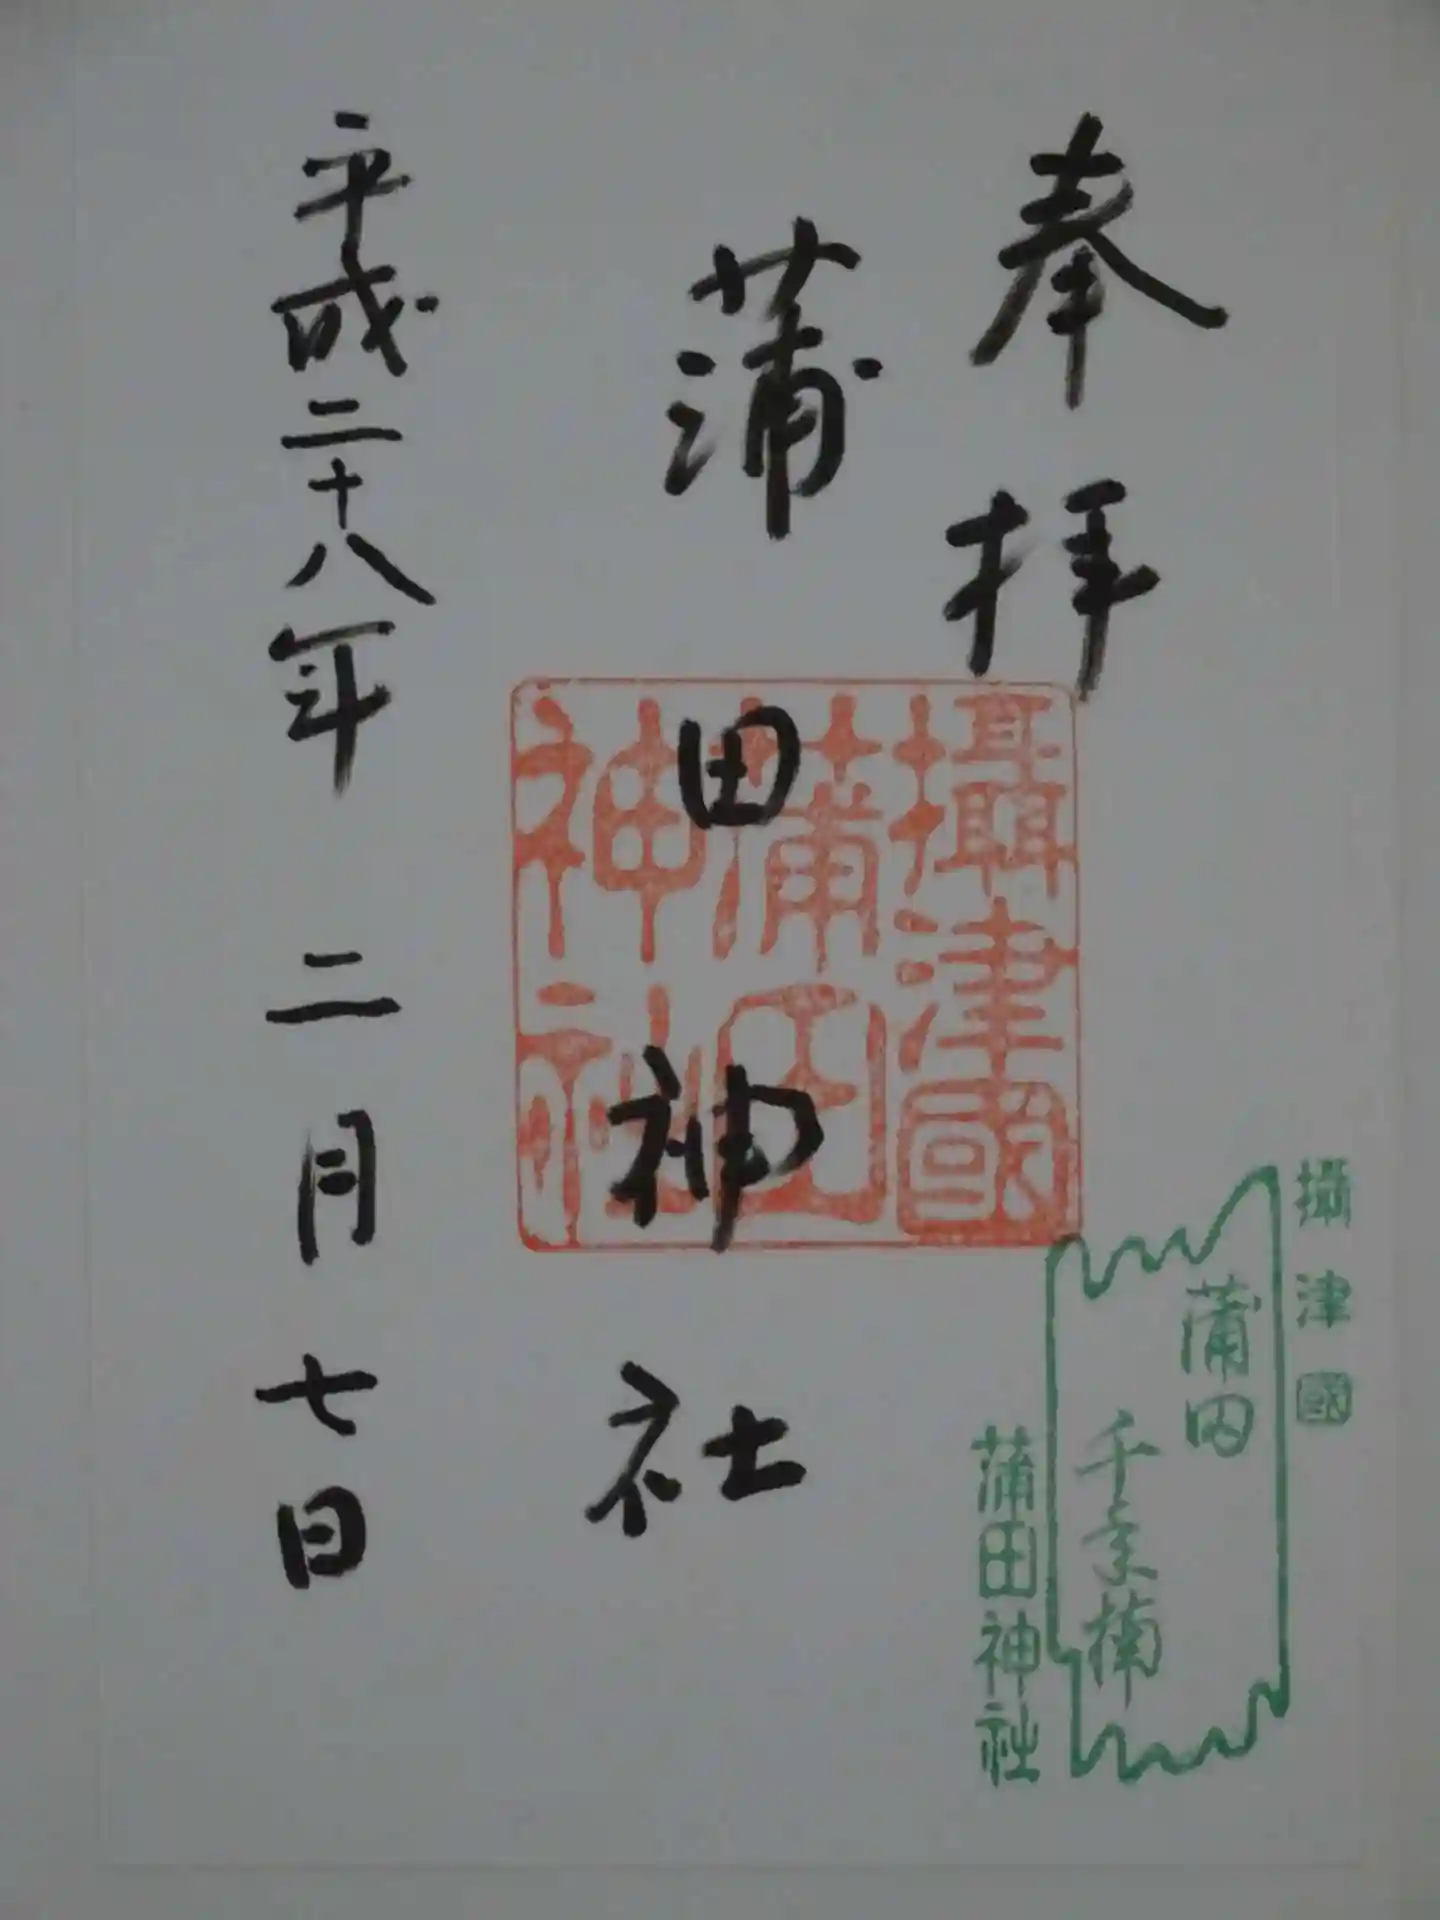 奉拝
蒲田神社
平成二十八年 二月七日
攝津國
蒲田
神社
攝津國
蒲田
千年楠
蒲田神社